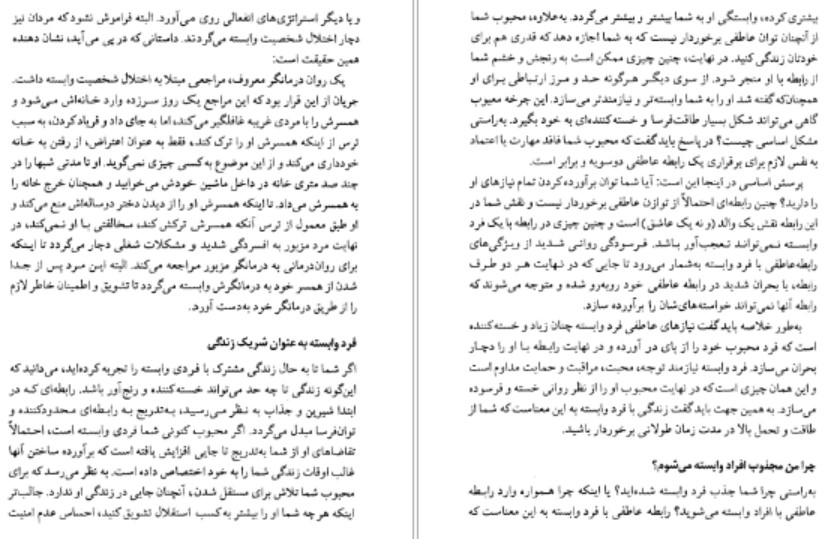 و یا دیگر استراتژی‌های انفعالی روی می‌آورد. البته فراموش نشود که مردان نیز
دچار اختلال شخصیت وابسته می‌گردند. داستانی که در پی می‌آید، نشان دهنده
همین حقیقت است:
یک روان درمانگر معروف، مراجعی مبتلا به اختلال شخصیت وابسته داشت.
جریان از این قرار بود که این مراجع یک روز سرزده وارد خانه‌اش می‌شود و
همسرش را با مردی غریبه غافلگیر می‌کند، اما به جای داد و فریاد کردن، به سبب
ترس از اینکه همسرش او را ترک کند، فقط به عنوان اعتراض، از رفتن به خانه
خودداری می‌کند و از این موضوع به کسی چیزی نمی‌گوید. او تا مدتی شبها را در
چند صد متری خانه در داخل ماشین خودش می‌خوابید و همچنان خرج خانه را
به همسرش می‌داد. تا اینکه همسرش او را از دیدن دختر دوساله‌اش منع می‌کند و
او طبق معمول از ترس آنکه همسرش ترکش کند، مخالفتی با او نمی‌کند، در
نهایت مرد مزبور به افسردگی شدید و مشکلات شغلی دچار می‌گردد تا اینکه
برای روان‌درمانی به درمانگر مزبور مراجعه می‌کند. البته این مرد پس از جدا
شدن از همسر خود به درمانگرش وابسته می‌گردد تا تشویق و اطمینان خاطر لازم
را از طریق درمانگر خود به‌دست آورد.
فرد وابسته به عنوان شریک زندگی
اگر شما تا به حال زندگی مشترک با فردی وابسته را تجربه کرده‌اید، می‌دانید که
این‌گونه زندگی تا چه حد می‌تواند خسته‌کننده و رنج‌آور باشد. رابطه‌ای که در
ابتدا شیرین و جذاب به نظر می‌رسید، به‌تدریج به رابطه‌ای محدودکننده و
توان‌فرسا مبدل می‌گردد. اگر محبوب کنونی شما فردی وابسته است، احتمالاً
تقاضاهای او از شما به‌تدریج تا جایی افزایش یافته است که برآورده ساختن آنها
غالب اوقات زندگی شما را به خود اختصاص داده است. به نظر می‌رسد که برای
محبوب شما تلاش برای مستقل شدن، آنچنان جایی در زندگی او ندارد. جالب‌تر
اینکه هر چه شما او را بیشتر به کسب استقلال تشویق کنید، احساس عدم امنیت
بیشتری کرده، وابستگی او به شما بیشتر و بیشتر می‌گردد. به‌علاوه، محبوب شما
از آنچنان توان عاطفی برخوردار نیست که به شما اجازه دهد که قدری هم برای
خودتان زندگی کنید. در نهایت، چنین چیزی ممکن است به رنجش و خشم شما
از رابطه با او منجر شود. از سوی دیگر هرگونه حد و مرز ارتباطی برای او
همچنان‌که گفته شد او را به شما وابسته‌تر و نیازمندتر می‌سازد. این چرخه معیوب
گاهی می‌تواند شکل بسیار طاقت‌فرسا و خسته‌کننده‌ای به خود بگیرد. به‌راستی
مشکل اساسی چیست؟ در پاسخ باید گفت که محبوب شما فاقد مهارت یا اعتماد
به نفس لازم برای برقراری یک رابطه عاطفی دوسویه و برابر است.
پرسش اساسی در اینجا این است: آیا شما توان برآورده کردن تمام نیازهای او
را دارید؟ چنین رابطه‌ای احتمالاً از توازن عاطفی برخوردار نیست و نقش شما در
این رابطه نقش یک والد (و نه یک عاشق) است و چنین چیزی در رابطه با یک فرد
وابسته نمی‌تواند تعجب‌آور باشد. فرسودگی روانی شدید از ویژگی‌های
رابطه‌عاطفی با فرد وابسته به‌شمار می‌رود تا جایی که در نهایت هر دو طرف
رابطه، با بحران شدید در رابطه عاطفی خود روبه‌رو شده و متوجه می‌شوند که
رابطه آنها نمی‌تواند خواسته‌های‌شان را برآورده سازد.
به‌طور خلاصه باید گفت نیازهای عاطفی فرد وابسته چنان زیاد و خسته‌کننده
است که فرد محبوب خود را از پای در آورده و در نهایت رابطه با او را دچار
بحران می‌سازد. فرد وابسته نیازمند توجه، محبت، مراقبت و حمایت مداوم است
و این همان چیزی است که در نهایت محبوب او را از نظر روانی خسته و فرسوده
می‌سازد. به همین جهت باید گفت زندگی با فرد وابسته به این معناست که شما از
طاقت و تحمل بالا در مدت زمان طولانی برخوردار باشید.
چرا من مجذوب افراد وابسته می‌شوم؟
به‌راستی چرا شما جذب فرد وابسته شده‌اید؟ یا اینکه چرا همواره وارد رابطه
عاطفی با افراد وابسته می‌شوید؟ رابطه عاطفی با فرد وابسته به این معناست که